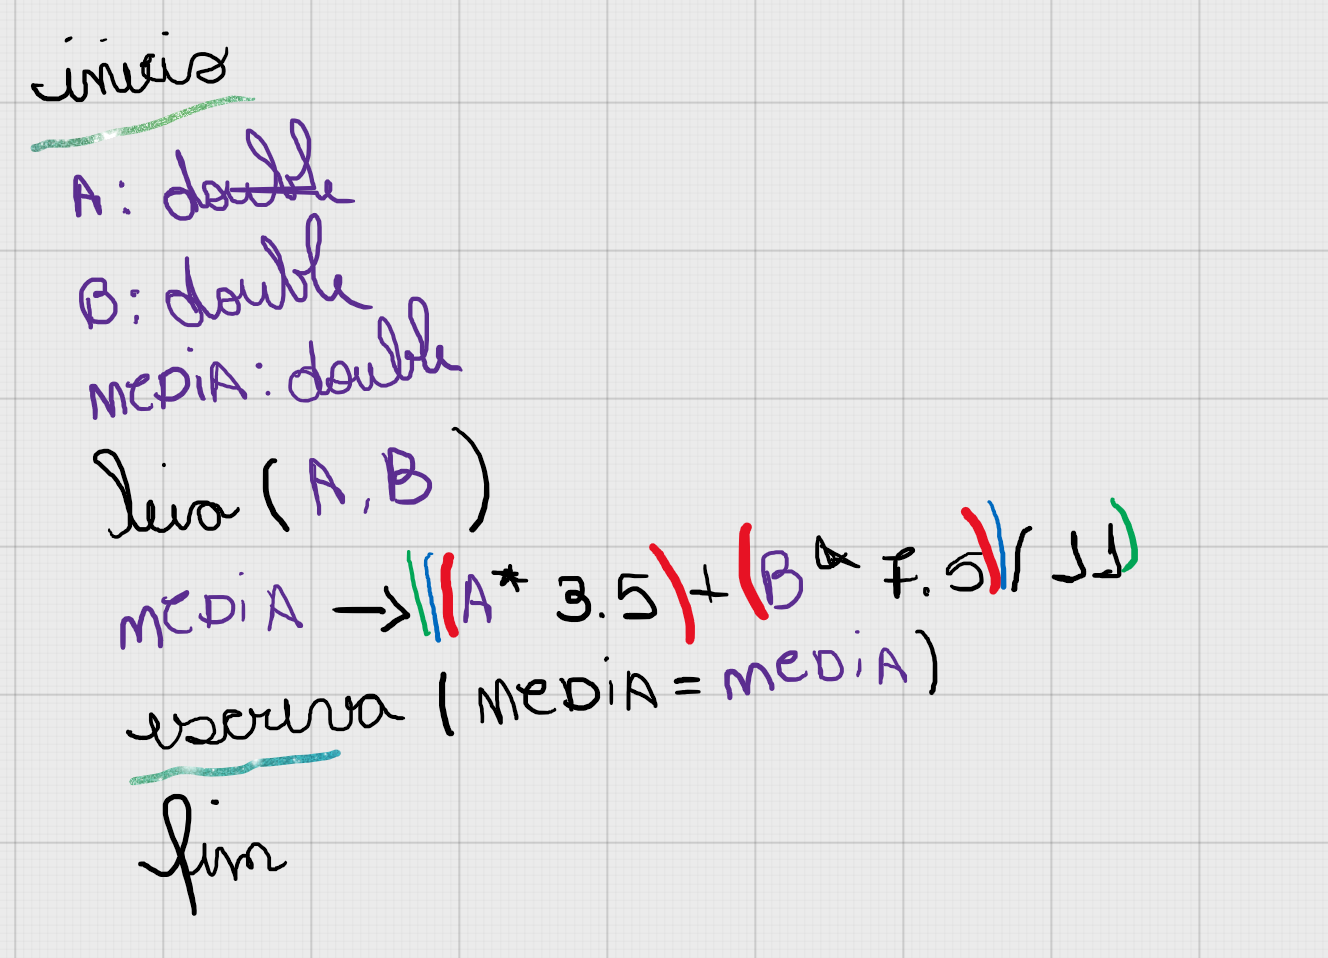 inicio
A: double
B: double
MEDiA: double
leia (A, B)
MEDiA → (((A * 3.5) + (B * 7.5)) / 11)
escriva (MEDiA = MEDiA)
fim